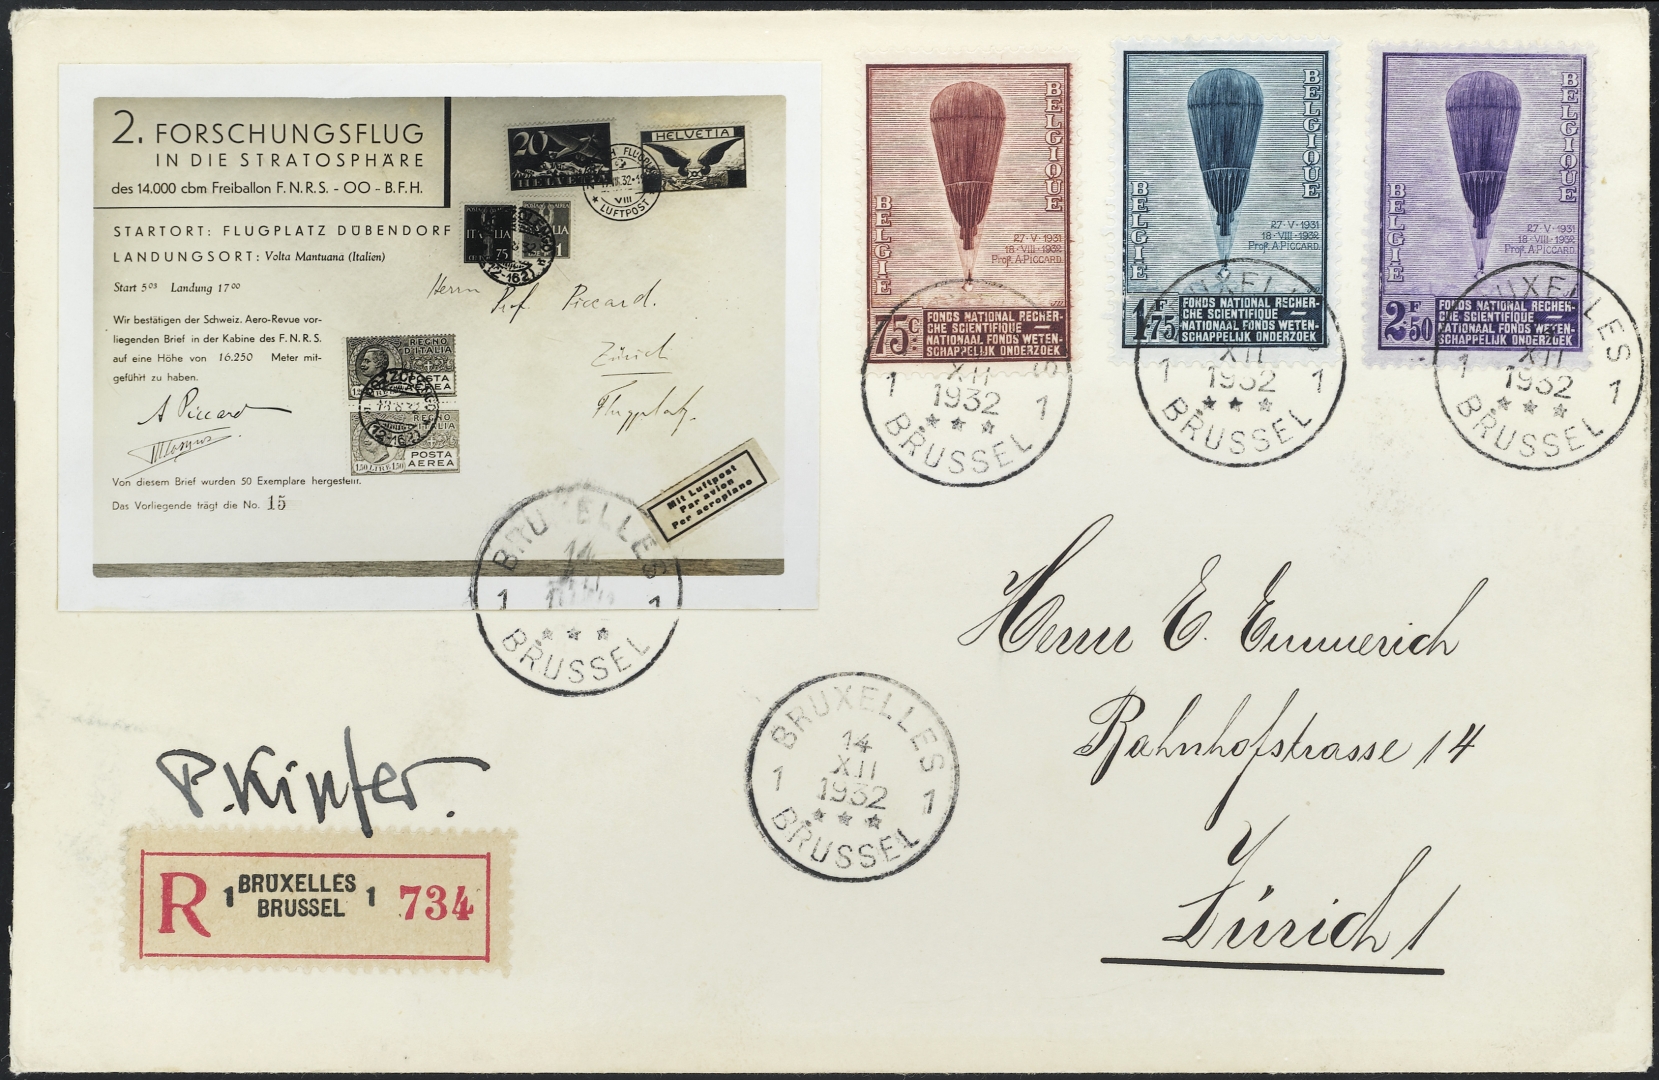 2. FORSCHUNGSFLUG
IN DIE STRATOSPHÄRE
des 14.000 cbm Freiballon F.N.R.S. - OO - B.F.H.
STARTORT: FLUGPLATZ DÜBENDORF
LANDUNGSORT: Volta Mantuana (Italien)
Start 5⁰³ Landung 17⁰⁰
Wir bestätigen der Schweiz. Aero-Revue vor-
liegenden Brief in der Kabine des F.N.R.S.
auf eine Höhe von 16.250 Meter mit-
geführt zu haben.
A Piccard
Von diesem Brief wurden 50 Exemplare hergestellt.
Das Vorliegende trägt die No. 15
20
HELVETIA
HELVETIA
VIII
LUFTPOST
ITALIA
75
1
Herrn Prof. Piccard.
Zürich
Flugplatz.
REGNO
D'ITALIA
POSTA
AEREA
REGNO
D'ITALIA
POSTA
AEREA
1.50 LIRE 1.50
Mit Luftpost
Par avion
Per aeroplano
BELGIQUE
BELGIE
27-V-1931
18-VIII-1932
Prof. A. PICCARD.
75c
FONDS NATIONAL RECHER-
CHE SCIENTIFIQUE —
NATIONAAL FONDS WETEN-
SCHAPPELIJK ONDERZOEK
BELGIQUE
BELGIE
27-V-1931
18-VIII-1932
Prof. A. PICCARD.
1F75
FONDS NATIONAL RECHER-
CHE SCIENTIFIQUE —
NATIONAAL FONDS WETEN-
SCHAPPELIJK ONDERZOEK
BELGIQUE
BELGIE
27-V-1931
18-VIII-1932
Prof. A. PICCARD.
2F50
FONDS NATIONAL RECHER-
CHE SCIENTIFIQUE —
NATIONAAL FONDS WETEN-
SCHAPPELIJK ONDERZOEK
1 XII 1
1932
BRUSSEL
BRUXELLES
1 XII 1
1932
BRUSSEL
BRUXELLES
1 XII 1
1932
BRUSSEL
BRUXELLES
14
1 1
BRUSSEL
BRUXELLES
14
1 XII 1
1932
BRUSSEL
Herrn E. Emmerich
Bahnhofstrasse 14
Zürich 1
P. Kipfer.
R 1 BRUXELLES 1 734
BRUSSEL